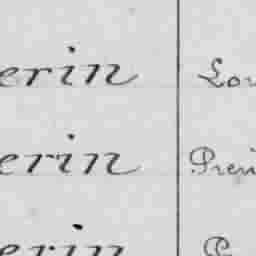 erin Lou
erin Preni
erin P